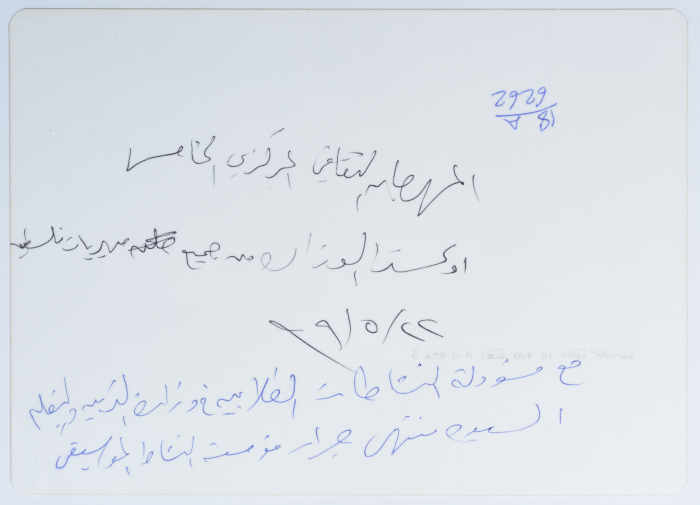 2929
18 A
المهرجان الثقافي المركزي الخامس
اوركسترا الوزارة من جميع مديريات فلسطين
٢٢/٥/٩
مع مسؤولة النشاطات الطلابية في وزارة التربية والتعليم
السيدة منتهى جرار مؤسسة النشاط الموسيقي